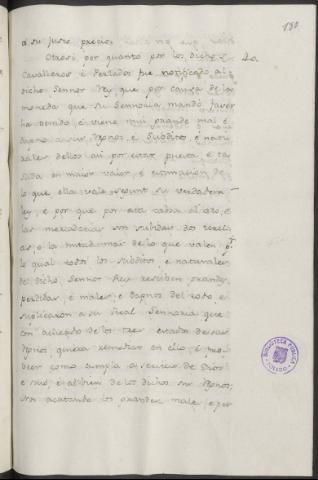 130
à su justo precio
Otrosi, por quanto por los dichos
Cavalleros è Perlados fue notificado al
dicho Sennor Rey que por causa de la
moneda que su Sennoria mandó facer
ha venido è viene mui grande mal è
dapno a sus Regnos è Subditos, è natu-
rales dellos asi por estar puesta è ta-
sada en maior valor, è estimacion de
lo que ella vale segunt su verdadera
ley, e por que por esta cabsa el oro, è
las mercadurias son subidas dos tercias
mas, o la mitad mas de lo que valen, por
lo qual todos los Subditos è naturales
del dicho Sennor Rey resciben grandes
perdidas, è males, è dapnos del todo è
suplicaron a su Real Sennoria que
con acuerdo de los tres estados de sus
Regnos, quiera remediar en ello, è pro-
beer como cumpla a servicio de Dios
è suio, è al bien de los dichos sus Regnos;
Nos acatando los grandes males è per
BIBLIOTECA PUBLICA
TOLEDO